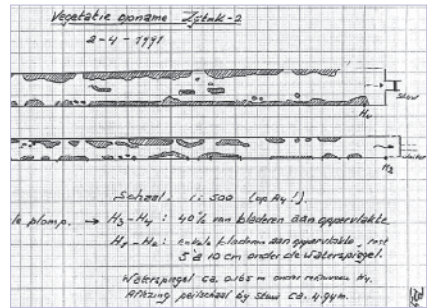 Vegetatie opname Zijtak-2
2-4-1991
stuw
H4
H3
Schaal. 1:500 (op A4!).
le plomp. → H3-H4: 40% van bladeren aan oppervlakte
enkele bladeren aan oppervlakte, rest
5 à 10 cm onder de waterspiegel.
Waterspiegel ca. 0.165 m onder H4.
Aflezing peilschaal by stuw ca. 4.94m.